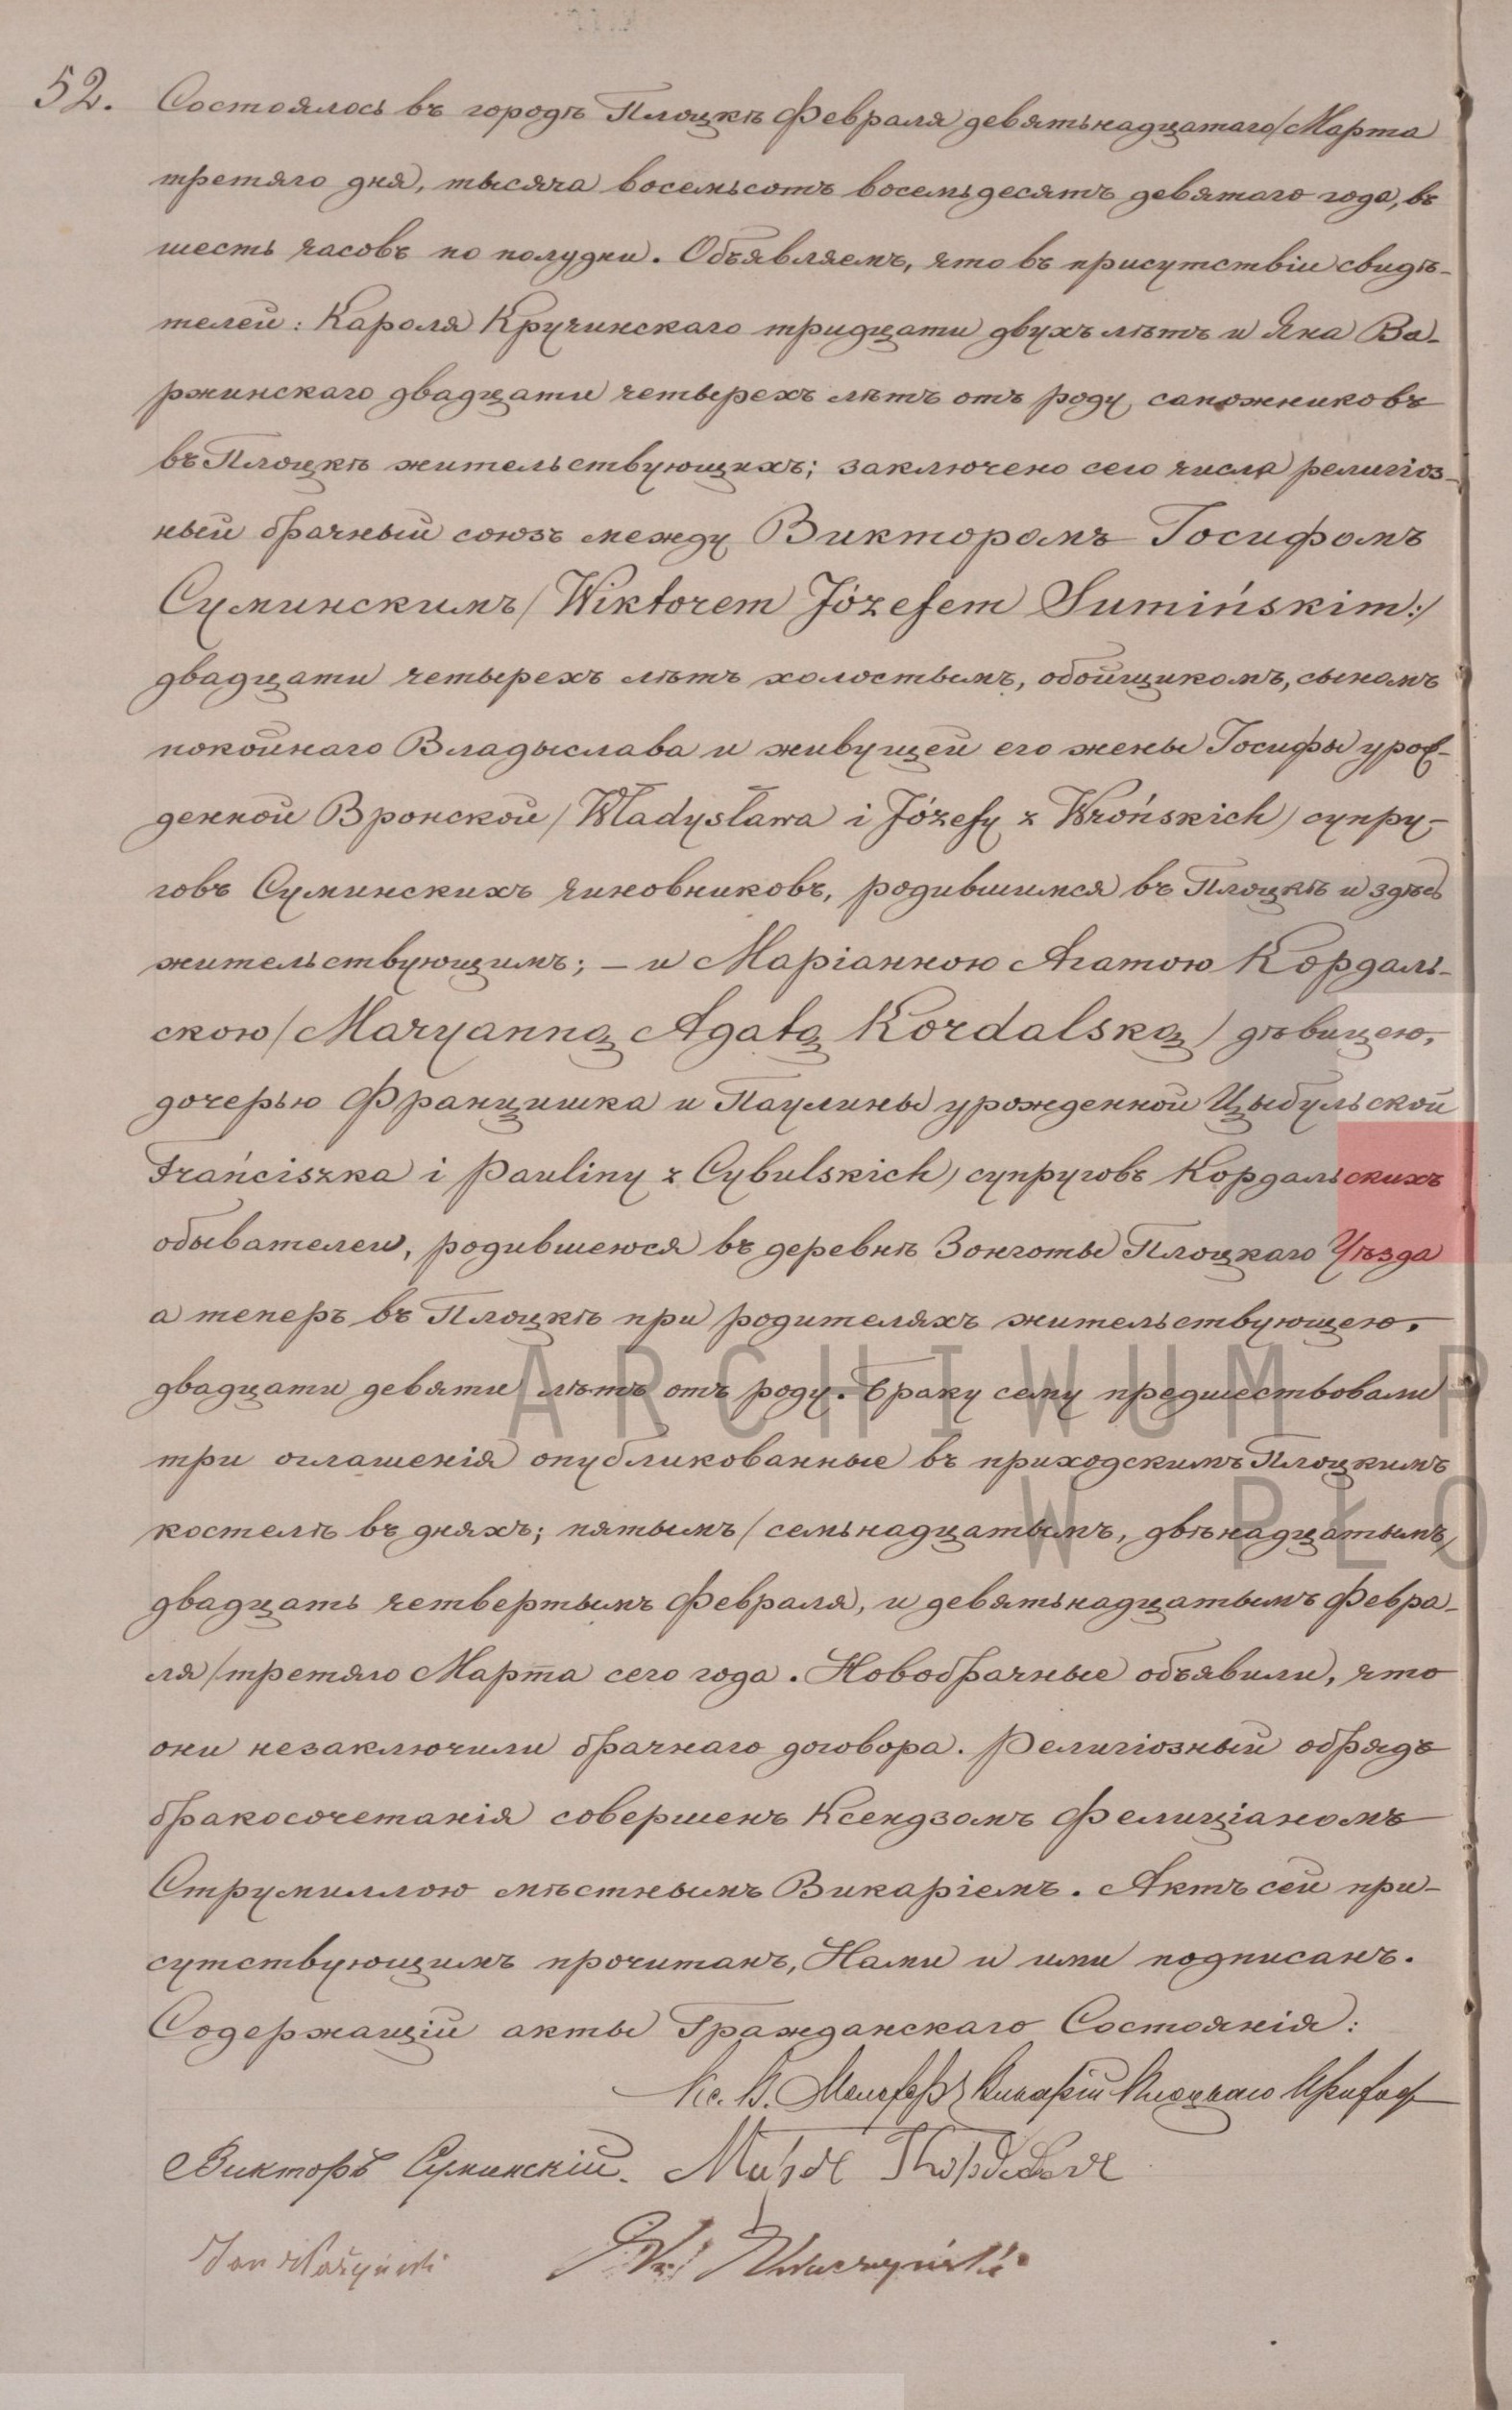 52. Состоялось въ городѣ Плоцкѣ Февраля девятьнадцатаго/Марта
третяго дня, тысяча восемьсотъ восемьдесятъ девятаго года, въ
шесть часовъ по полудни. Объявляемъ, что въ присутствіи свидѣ-
телей: Кароля Кручинскаго тридцати двухъ лѣтъ и Яна Ва-
ржинскаго двадцати четырехъ лѣтъ отъ роду, сапожниковъ
въ Плоцкѣ жительствующихъ; заключено сего числа религіоз-
ный брачный союзъ между Викторомъ Іосифомъ
Суминскимъ/Wiktorem Józefem Sumińskim:/
двадцати четырехъ лѣтъ холостымъ, обойщикомъ, сыномъ
покойнаго Владыслава и живущей его жены Іосифы урож-
денной Вронской/Władysława i Józefy z Wrońskich) супру-
говъ Суминскихъ чиновниковъ, родившимся въ Плоцкѣ и здѣсь
жительствующимъ; – и Маріанною Агатою Кордаль-
скою/Maryanną Agatą Kordalską) дѣвицею,
дочерью Францишка и Паулины урожденной Цыбульской
Frańciszka i Pauliny z Cybulskich) супруговъ Кордальскихъ
обывателей, родившеюся въ деревнѣ Зонготы Плоцкаго Уѣзда
а теперъ въ Плоцкѣ при родителяхъ жительствующею,
двадцати девяти лѣтъ отъ роду. Браку сему предшествовали
три оглашенія опубликованные въ приходскимъ Плоцкимъ
костелѣ въ дняхъ; пятымъ/семьнадцатымъ, двѣнадцатымъ/
двадцать четвертымъ Февраля, и девятьнадцатымъ Февра-
ля/третяго Марта сего года. Новобрачные объявили, что
они незаключили брачнаго договора. Религіозный обрядъ
бракосочетанія совершенъ Ксендзомъ Фелиціаномъ
Струмиллою мѣстнымъ Викаріемъ. Актъ сей при-
сутствующимъ прочитанъ, Нами и ими подписанъ.
Содержащій акты Гражданскаго Состоянія:
Кс. Викарій Плоцкаго
Викторъ Суминскій.
Jan
ARCHIWUM P
W PŁO